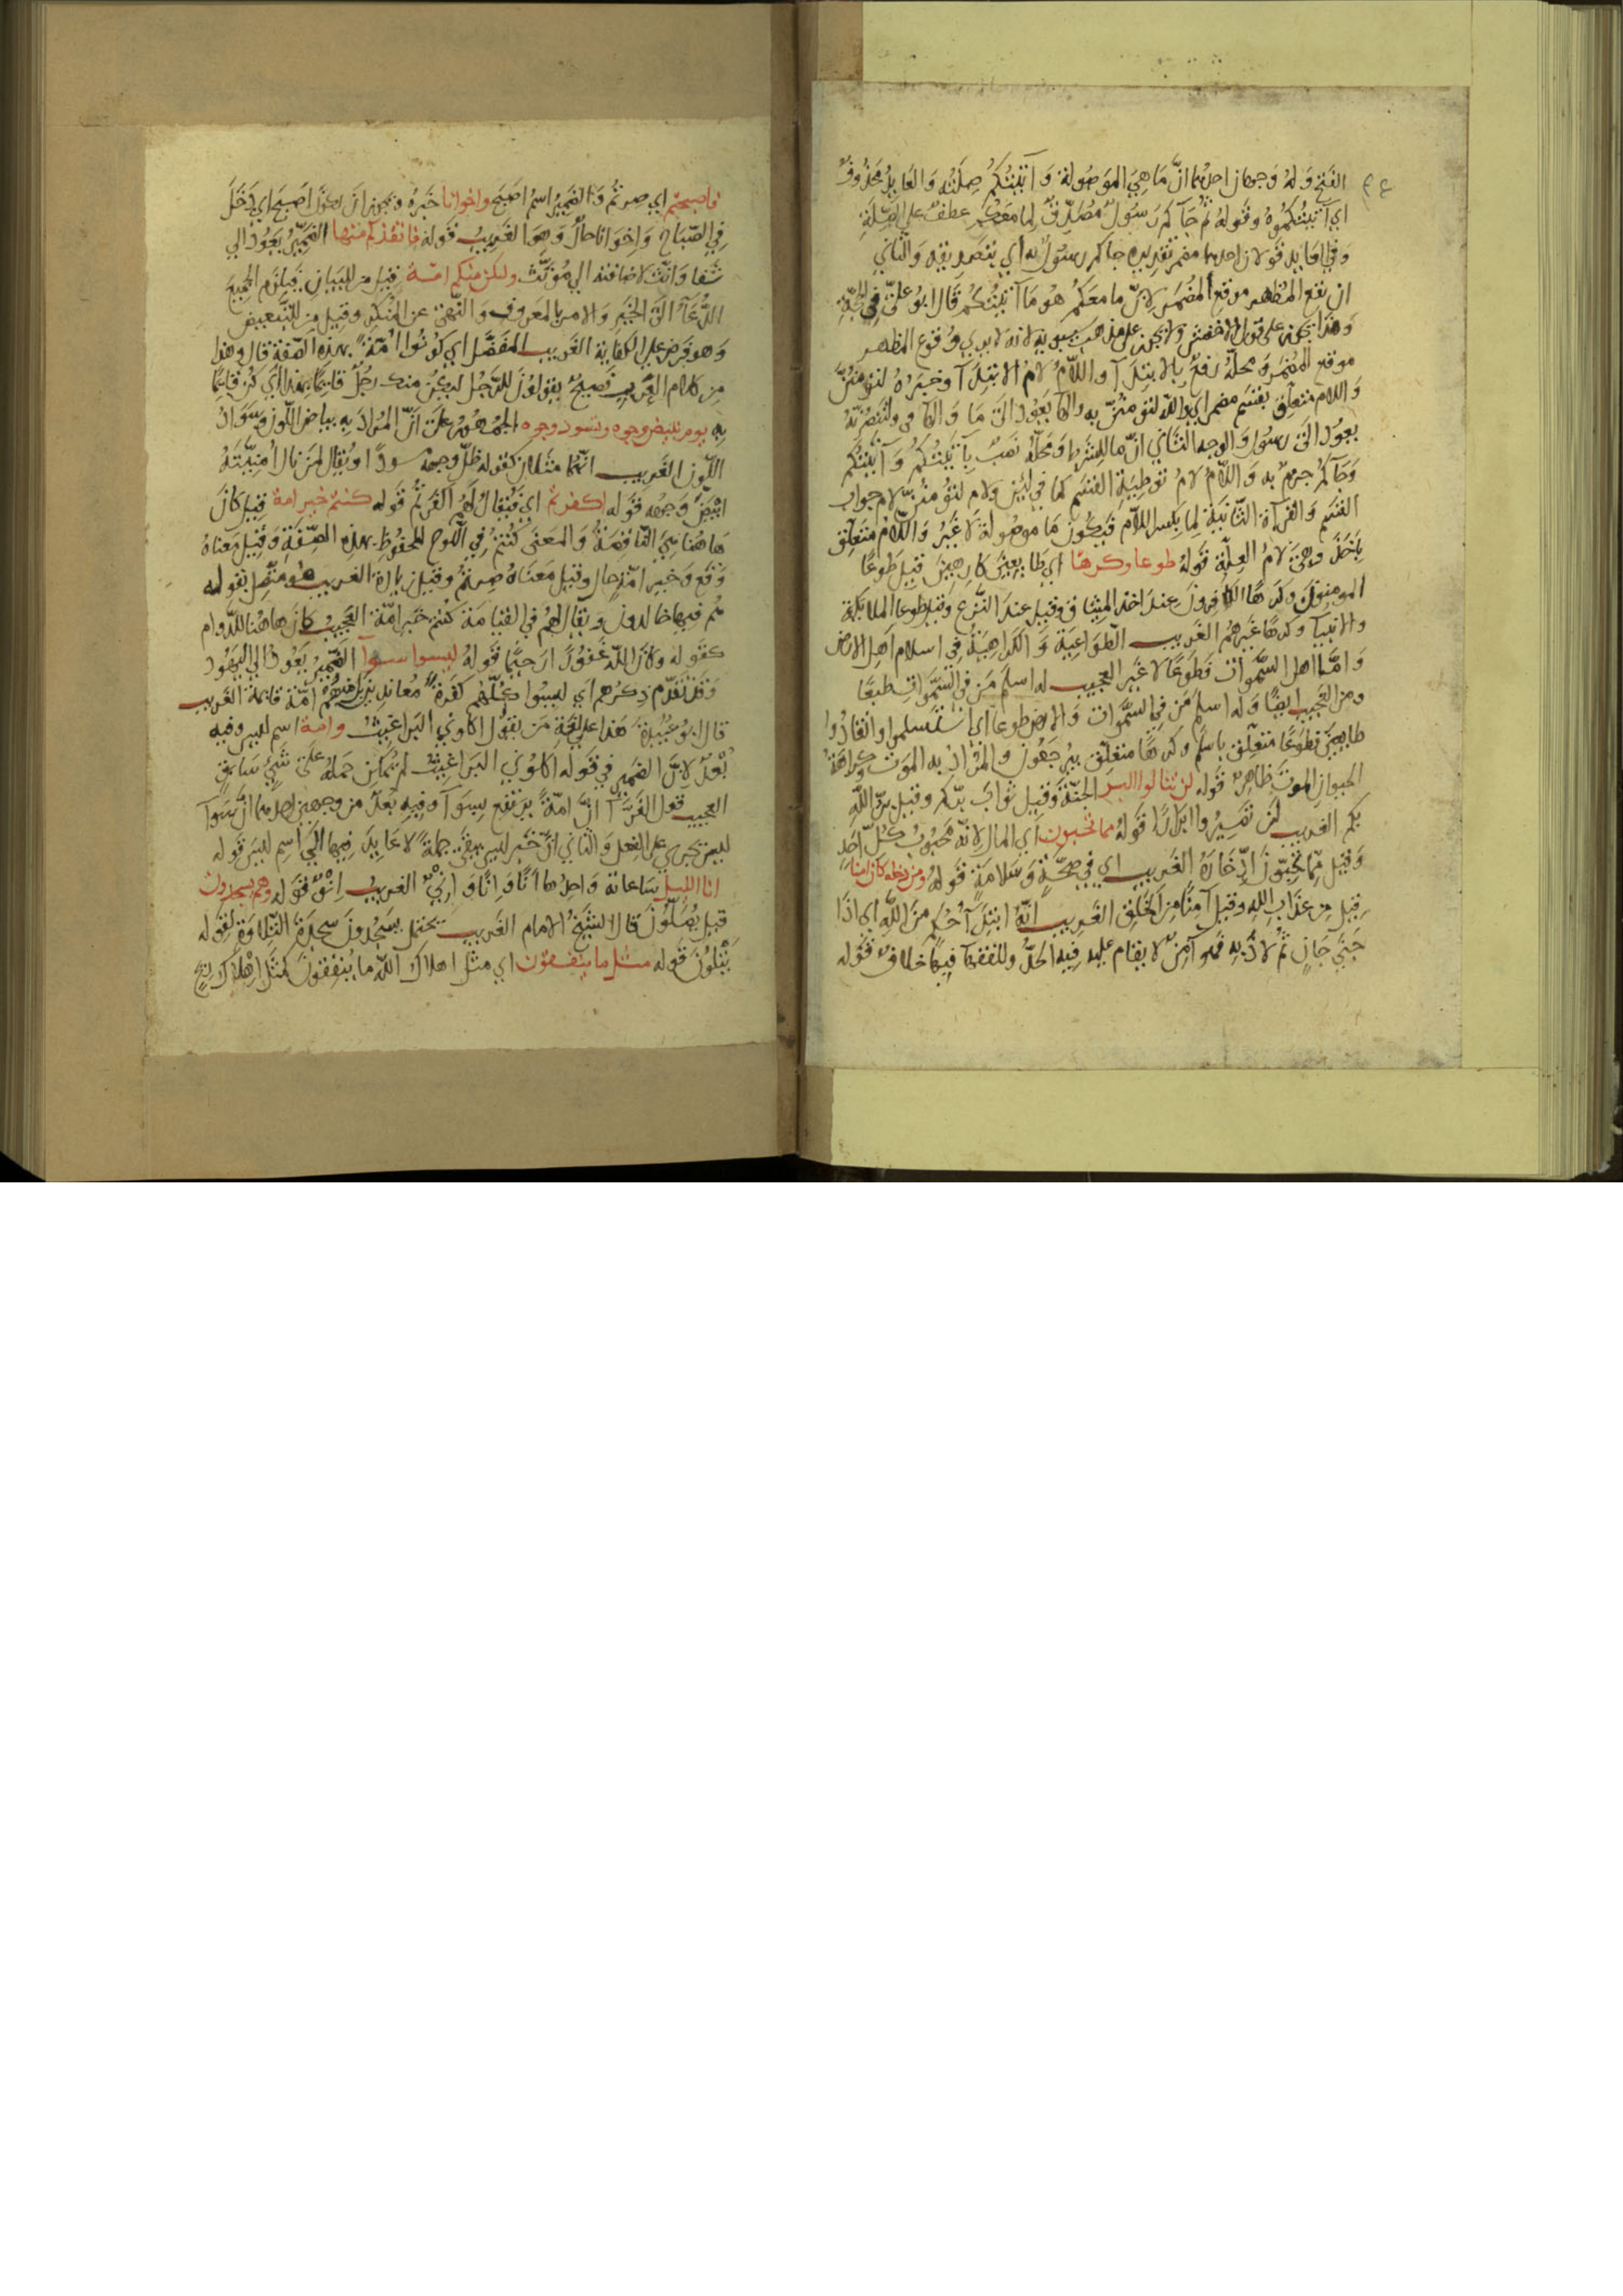 الفتح وَلهُ وَجهان احدهما انّ مَا هِيَ المَوصُولة وَ آتيْتُكُم صِلَتُه وَالعَايدُ محَذُوفٌ
اي آتيتُكمُوهُ وقَولهُ ثُم جَآ كم رَسُولٌ مُصَدِّقٌ لِما مَعَكم عطفٌ على الصِّلَة
وَفي العَايد قولان احدهما مضمر تقديره جاكم رسول به اي بتصديقه وَالثاني
ان يقع المظهر موقع المضمَر لانّ ما معَكُم هُو مَا آتيتُكُم قَالَ ابُو عليّ في الحجّة
وَهذا يجوز على قول الاخفش ولا يجوز على مذهب سيبويه لانه لا يري وُقوع المظهر
موقع المضمر وَمحلّهُ رَفعٌ بالابتدآ واللّامُ لامُ الابتدآ وخبره لتؤمننّ
وَاللام متعلّق بقسَم مضمر اي والله لتؤمننّ به والهَآ يَعُود الَى مَا وَالهَآ في ولتنصُرنّهُ
يعوُد الَى رسوُل وَالوجه الثاني انّ ما للشرط وَمحَلّه نَصبٌ بآتيتُكُم وَآتيتكم
وَجَآكمُ جزمٌ به وَاللَّامُ لامُ توطِيَة القسَم كما في لئن ولام لتؤمننّ لام جواب
القسَم وَالقرآة الثانية لِما بكسر اللام فَيكون مَا موصُولة لاَ غَيرُ وَاللّام متعلّق
بأخذ وهيَ لامُ العِلّة قولهُ طوعا وكرها اي طايعينَ كارهينَ قيل طَوعًا
المومنوُن وكرهًا الكافِرون عندَ اخذ الميثاق وقيل عندَ النَّزع وَقيل طوعا الملايكة
والانبيآ وكرهًا غَيرهُم الغَريب الطَوَاعِيَة وَالكَراهِيَةُ في اسلام اهل الارض
وَامَّا اهل السَّموات فَطَوعًا لا غَير العجيب له اسلمَ مَن في السَّمَوات طَبعًا
ومن العَجيب ايضًا وَله اسلمَ مَن في السَّموات وَالارض طوعًا اي استسلموا وانقادُوا
طايعينَ فطَوعًا متعلّق باسلمَ وكرهًا متعلّق بيُرجَعُون والمُرَادُ به الموت وكراهَة
الحيوان الموتَ ظاهِرٌ قَوله لن تنالوا البر الجنّة وقيل ثوابَ برّكم وقيل برّ الله
بكم الغريب لن تصيرُوا ابرارًا قَولهُ مما تحبون اي المال لانّه محبُوبُ كلّ احَدٍ
وقيل مِّمَا تحبّونَ ادّخارَهُ الغَريب اي في صحَّةٍ وَسَلامَةٍ قَولهُ ومن دخله كان امنا
قيل مِن عذَاب الله وقيل آمنًا مِن الخَلق الغَريب انّهُ ابتدآ حُكم منَ اللّه اي اذَا
جَنَى جَانٍ ثُمَّ لاذ به فهُو آمِنٌ لا يقام علَيه فيهِ الحَدُّ وللفقهآ فيهَا خلافٌ قَولهُ
فاصبحتم اي صِرتمُ وَالضَميرُ اسمُ اصبَح واخوانا خَبرُهُ ويجوز ان يكوُن اصبح اي دَخَل
في الصَّباح وَاخوَانا حالٌ وَهوَ الغَريب قَوله فانقذكم منها الضَميرُ يَعُودُ الي
شَفا وَانّثَ لاضافته الي مُؤنّث ولتكن منكم امّة قيل من للتبيان فيلزم الجميعَ
الدُّعَآءُ الَى الخَيرِ وَالامر بالمعرُوفِ وَالنَّهىِ عن المُنكَر وقيل من للتَّبعيض
وَهو فرض على الكفاية الغَريب المفضّل اي كونُوا اُمّةً بهذه الصّفة قالَ وهذا
مِن كلام العَرَب فَصيحٌ يقولونَ للرّجُل ليَكُن منكَ رَجُلٌ قائمًا بهذا اي كُن قايمًا
بِه يوم تبيض وجوه وتسود وجوه الجمُهُور على اَنّ المُرادَ بِهِ بياض اللّون وَسَوادُ
اللّون الغَريب انّهُمَا مثَلان كقوله ظلَّ وجهه مسودًا ويُقَال لمَن نال اُمنيّتَهُ
ابيَضَّ وَجهُه قَوله اكفرتم اي فيُقال لهُم اكَفَرتُم قَوله كنتم خير امة قيل كانَ
هَاهُنا هيَ النّاقصَة وَالمعنَى كُنتُم في اللوح المحفُوظ بهذِه الصِّفَة وَقيل مَعناهُ
وَقَع وَخيرَ امّة حال وقيل مَعنَاهُ صِرتُمُ وقيل زيادة الغريب هُو متّصل بقوله
هُم فيها خالدونَ ويقَال لهُم في القيامَة كنتم خَير امّة العَجيب كانَ هاهُنا للدَّوام
كقوله وكانَ اللَّه غَفُورًا رَحيمًا قَولهُ ليسوا سوآ الضَّمير يَعُود الي اليَهُود
وَقد تقَدّم ذِكرُهم اي ليسُوا كلّهُم كفَرَةً مُعاندين بَل منهُم امّة قايمة الغَريب
قال ابُو عبيدة هَذا على لغَةِ مَن يقُول اكلوني البَراغيثُ وامة اسم ليسَ وفيه
بُعدٌ لاِنّ الضمير في قَوله اكلوني البَراغيثُ لم يُمكِن حَملهُ علَى شَيٍ سَابقٍ
العجيب قول الفرّآ انَّ امّةً يَرتفع بِسوَآ وفيهِ بُعدٌ من وجهين احدهما انّ سَوآ
ليسَ يجري على الفِعل وَالثاني انّ خَبر ليسَ يبقَى جملةً لا عَايدَ فيها الَى اسم ليسَ قوله
انا الليل سَاعاته وَاحدُها اَنًا وَاِنًا وَاِنيٌ الغريب اِنوٌ قَوله وهم يسجدون
قيل يُصَلّوُنَ قالَ الشيخُ الامام الغَريب يحتمل يَسجُدونَ سجدَة التِّلاوَة لقوله
يَتلُونَ قَوله مثل ما ينفقون اي مثَل اهلاك اللَّه ما يُنفِقُونَ كمثَل اِهلاك ريح